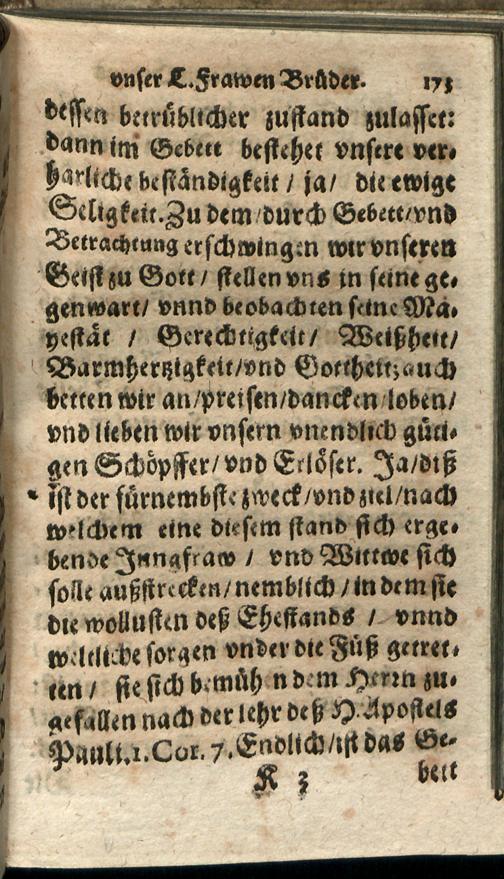 vnser L. Frawen Brüder. 173
dessen betrüblicher zustand zulasset:
dann im Gebett bestehet vnsere ver-
harliche beständigkeit / ja / die ewige
Seligkeit. Zu dem / durch Gebett / vnd
Betrachtung erschwingen wir vnseren
Geist zu Gott / stellen vns in seine ge-
genwart / vnnd beobachten seine Ma-
yestät / Gerechtigkeit / Weißheit /
Barmhertzigkeit / vnd Gottheit; auch
betten wir an / preisen / dancken / loben /
vnd lieben wir vnsern vnendlich güti-
gen Schöpffer / vnd Erlöser. Ja / diß
ist der fürnembste zweck / vnd ziel / nach
welchem eine diesem stand sich erge-
bende Jungfraw / vnd Wittwe sich
solle außstrecken / nemblich / in dem sie
die wollusten deß Ehestands / vnnd
weltliche sorgen vnder die Füß getret-
ten / sie sich bemühen dem Herrn zu-
gefallen nach der lehr deß H. Apostels
Pauli. 1. Cor. 7. Endlich / ist das Ge-
K 3 bett